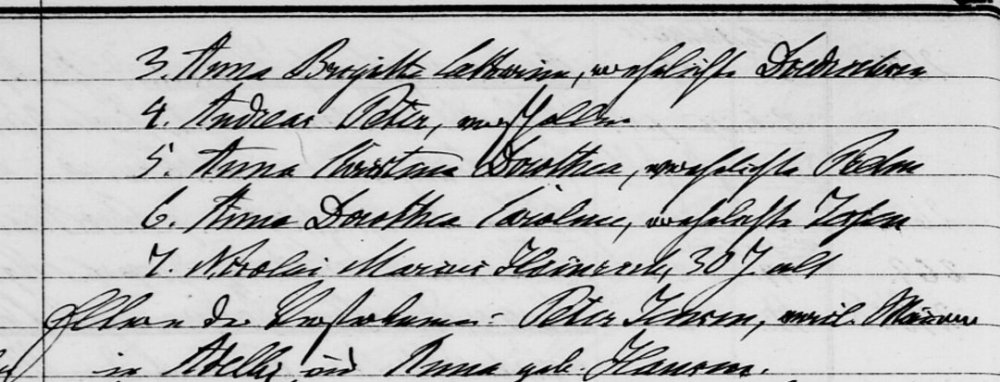 3. Anna Brigitte Catharina, verehelichte
4. Andreas Peter, verschollen
5. Anna Christina Dorothea, verehelichte
6. Anna Dorothea Caroline, verehelichte
7. Nicolai Marius Heinrich, 30 J. alt
Eltern der Verstorbenen: Peter Jensen, weil.
in und Anna geb. Hansen.